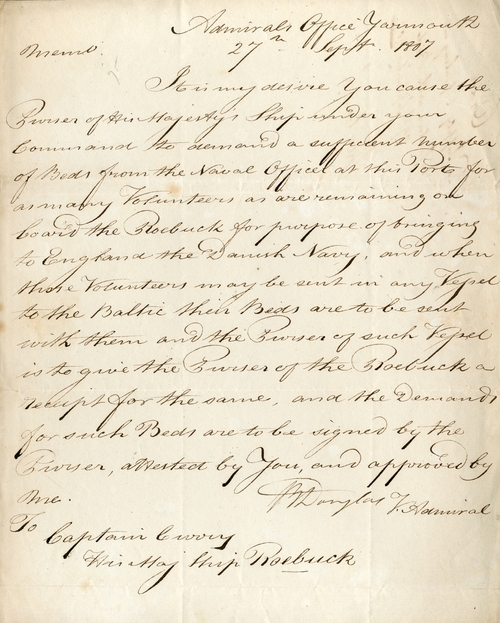 Admirals Office Yarmouth
Memo 27th Sept. 1807
It is my desire You cause the
Purser of His Majestys Ship under your
Command to demand a sufficient number
of Beds from the Naval Officer at this Port for
as many Volunteers as are remaining on
board the Roebuck for purpose of bringing
to England the Danish Navy, and when
those Volunteers may be sent in any Vessel
to the Baltic their Beds are to be sent
with them and the Purser of such Vessel
is to give the Purser of the Roebuck a
receipt for the same, and the Demands
for such Beds are to be signed by the
Purser, attested by You, and approved by
me.
Douglas V. Admiral
To
Captain
His Maj Ship Roebuck